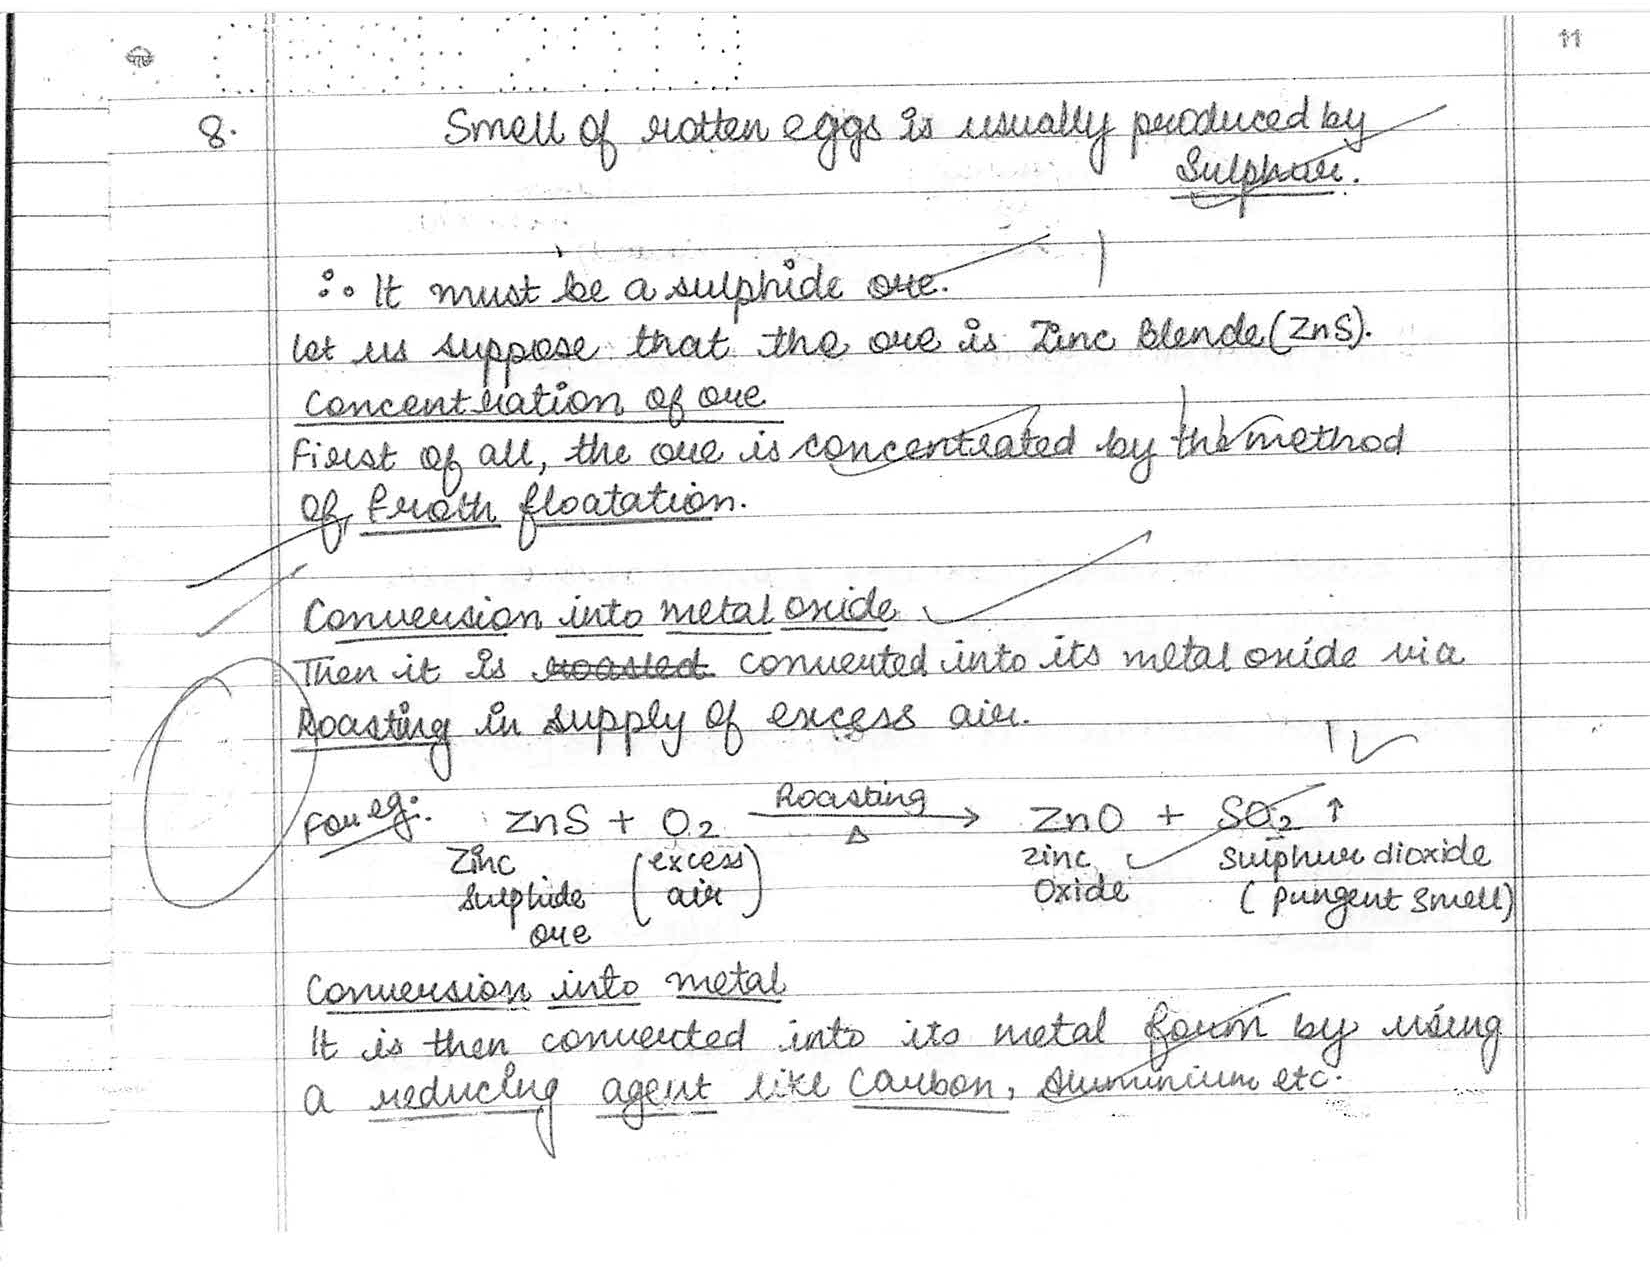 11
8. Smell of rotten eggs is usually produced by
Sulphur.
∴ It must be a sulphide ore.
let us suppose that the ore is Zinc Blende (ZnS).
Concentration of ore
First of all, the ore is concentrated by the method
of froth floatation.
Conversion into metal oxide
Then it is roasted converted into its metal oxide via
Roasting in supply of excess air.
For eg: ZnS + O2 Roasting Δ → ZnO + SO2 ↑
Zinc (excess zinc Sulphur dioxide
Sulphide air) Oxide (pungent smell)
ore
Conversion into metal
It is then converted into its metal form by using
a reducing agent like Carbon, Aluminium etc.